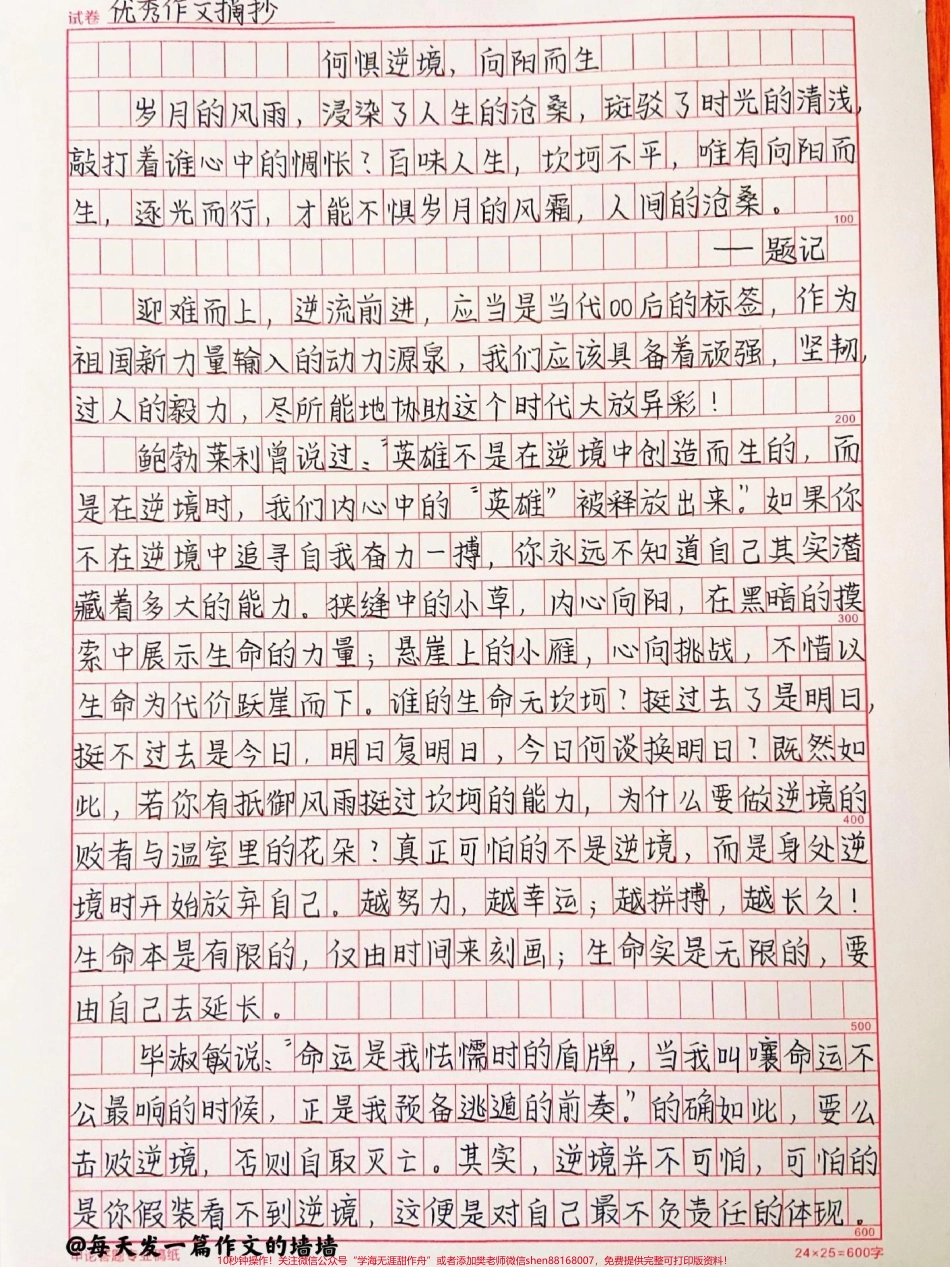 试卷 优秀作文摘抄
何惧逆境，向阳而生
岁月的风雨，浸染了人生的沧桑，斑驳了时光的清浅，
敲打着谁心中的惆怅？百味人生，坎坷不平，唯有向阳而
生，逐光而行，才能不惧岁月的风霜，人间的沧桑。
100
——题记
迎难而上，逆流前进，应当是当代00后的标签，作为
祖国新力量输入的动力源泉，我们应该具备着顽强，坚韧，
过人的毅力，尽所能地协助这个时代大放异彩！
200
鲍勃莱利曾说过：“英雄不是在逆境中创造而生的，而
是在逆境时，我们内心中的“英雄”被释放出来。”如果你
不在逆境中追寻自我奋力一搏，你永远不知道自己其实潜
藏着多大的能力。狭缝中的小草，内心向阳，在黑暗的摸
300
索中展示生命的力量；悬崖上的小雁，心向挑战，不惜以
生命为代价跃崖而下。谁的生命无坎坷？挺过去了是明日，
挺不过去是今日，明日复明日，今日何谈换明日？既然如
此，若你有抵御风雨挺过坎坷的能力，为什么要做逆境的
400
败者与温室里的花朵？真正可怕的不是逆境，而是身处逆
境时开始放弃自己。越努力，越幸运；越拼搏，越长久！
生命本是有限的，仅由时间来刻画；生命实是无限的，要
由自己去延长。
500
毕淑敏说：“命运是我怯懦时的盾牌，当我叫嚷命运不
公最响的时候，正是我预备逃遁的前奏。”的确如此，要么
击败逆境，否则自取灭亡。其实，逆境并不可怕，可怕的
是你假装看不到逆境，这便是对自己最不负责任的体现。
600
@每天发一篇作文的墙墙
申论答题专业稿纸
24×25=600字
10秒钟操作！关注微信公众号“学海无涯甜作舟”或者添加樊老师微信shen88168007，免费提供完整可打印版资料！